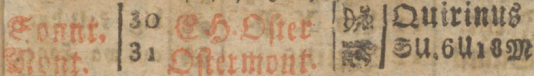 Sonnt. 30 E. H. Oster Quirinus
Mont. 31 Ostermont. SU. 6U18M